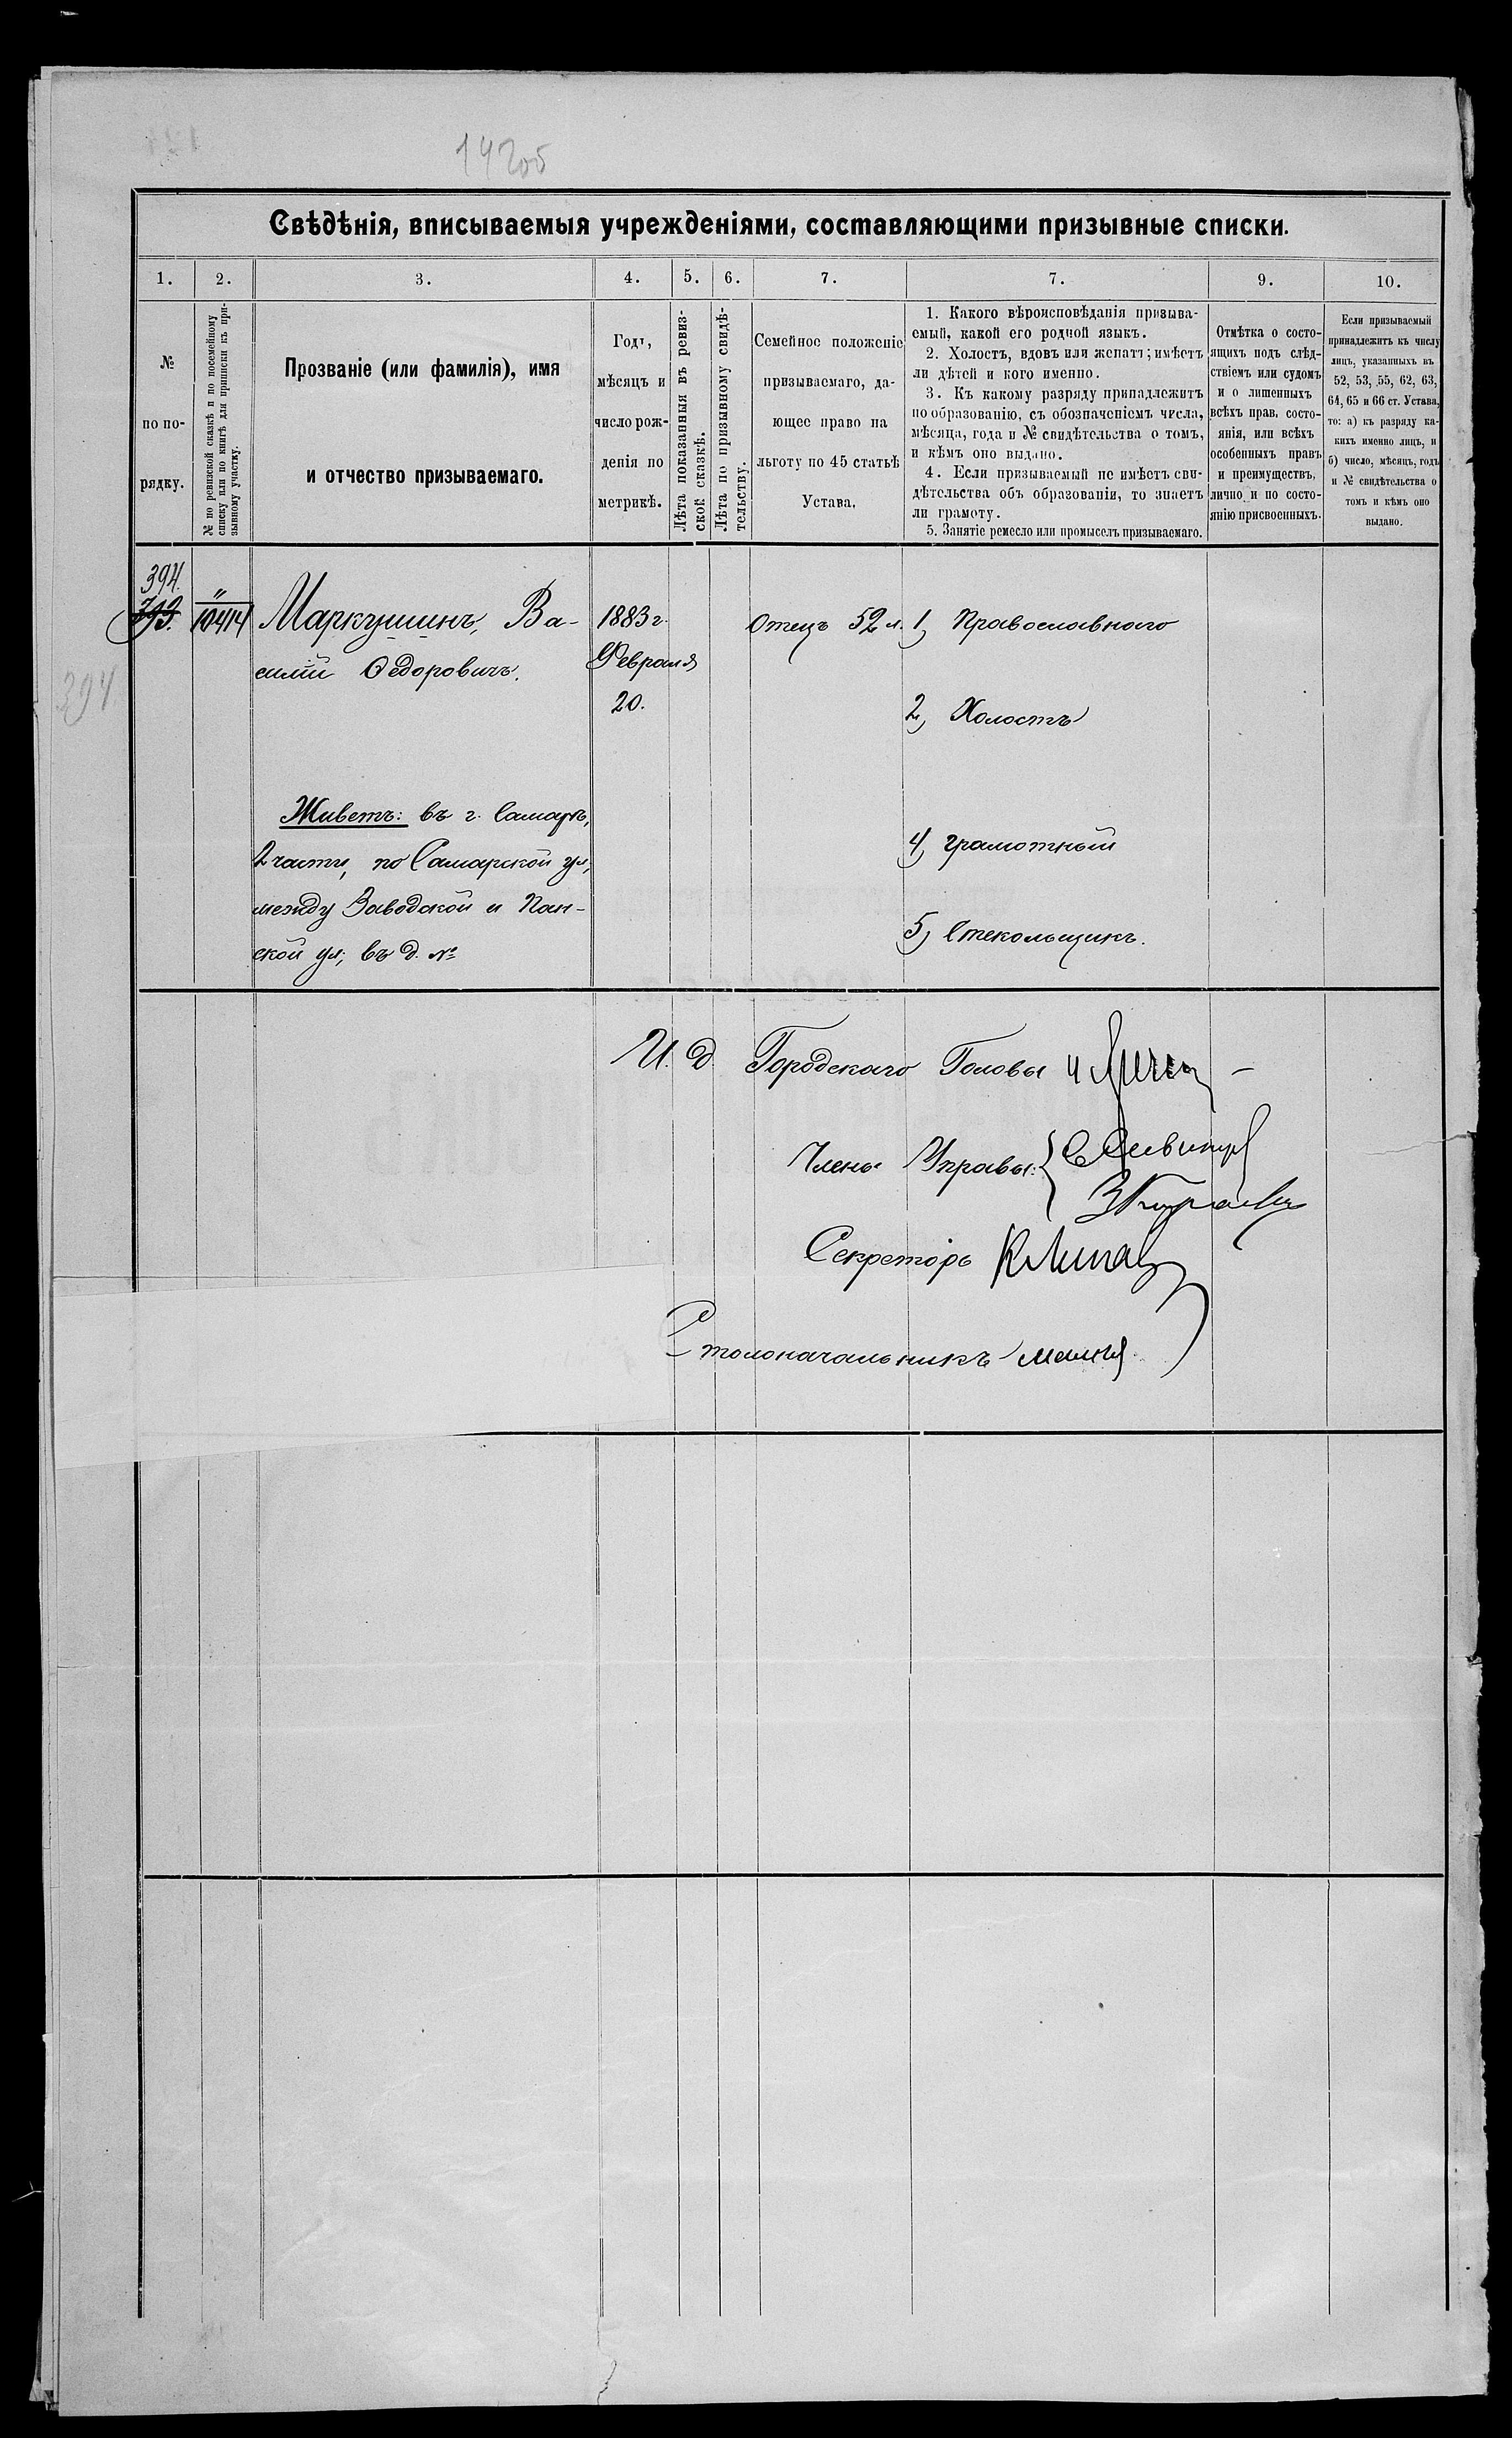 14205
Свѣдѣнія, вписываемыя учрежденіями, составляющими призывные списки.
1. 2. 3. 4. 5. 6. 7. 7. 9. 10.
№
по по-
рядку.
№ по ревизской сказкѣ и по посемейному
списку или по книгѣ для приписки къ при-
зывному участку.
Прозваніе (или фамилія), имя
и отчество призываемаго.
Годъ,
мѣсяцъ и
число рож-
денія по
метрикѣ.
Лѣта показанныя въ ревиз-
ской сказкѣ.
Лѣта по призывному свидѣ-
тельству.
Семейное положеніе
призываемаго, да-
ющее право на
льготу по 45 статьѣ
Устава.
1. Какого вѣроисповѣданія призыва-
емый, какой его родной языкъ.
2. Холостъ, вдовъ или женатъ; имѣетъ
ли дѣтей и кого именно.
3. Къ какому разряду принадлежитъ
по образованію, съ обозначеніемъ числа,
мѣсяца, года и № свидѣтельства о томъ,
и кѣмъ оно выдано.
4. Если призываемый не имѣетъ сви-
дѣтельства объ образованіи, то знаетъ
ли грамоту.
5. Занятіе ремесло или промыселъ призываемаго.
Отмѣтка о состо-
ящихъ подъ слѣд-
ствіемъ или судомъ
и о лишенныхъ
всѣхъ прав. состо-
янія, или всѣхъ
особенныхъ правъ
и преимуществъ,
лично и по состо-
янію присвоенныхъ.
Если призываемый
принадлежитъ къ числу
лицъ, указанныхъ въ
52, 53, 55, 62, 63,
64, 65 и 66 ст. Устава,
то: а) къ разряду ка-
кихъ именно лицъ, и
б) число, мѣсяцъ, годъ
и № свидѣтельства о
томъ и кѣмъ оно
выдано.
394.
393.
"
10414
Маркушинъ, Ва-
силій Ѳедоровичъ.
1883 г.
Февраля
20.
Отецъ 52 л.
1) Православнаго
394
2) Холостъ
Живетъ: въ г. Самарѣ,
2 части, по Самарской ул,
между Заводской и Пан-
ской ул; въ д. №
4) грамотный
5) Стекольщикъ.
И. д. Городскаго Головы
Члены Управы:
Секретарь
Столоначальникъ